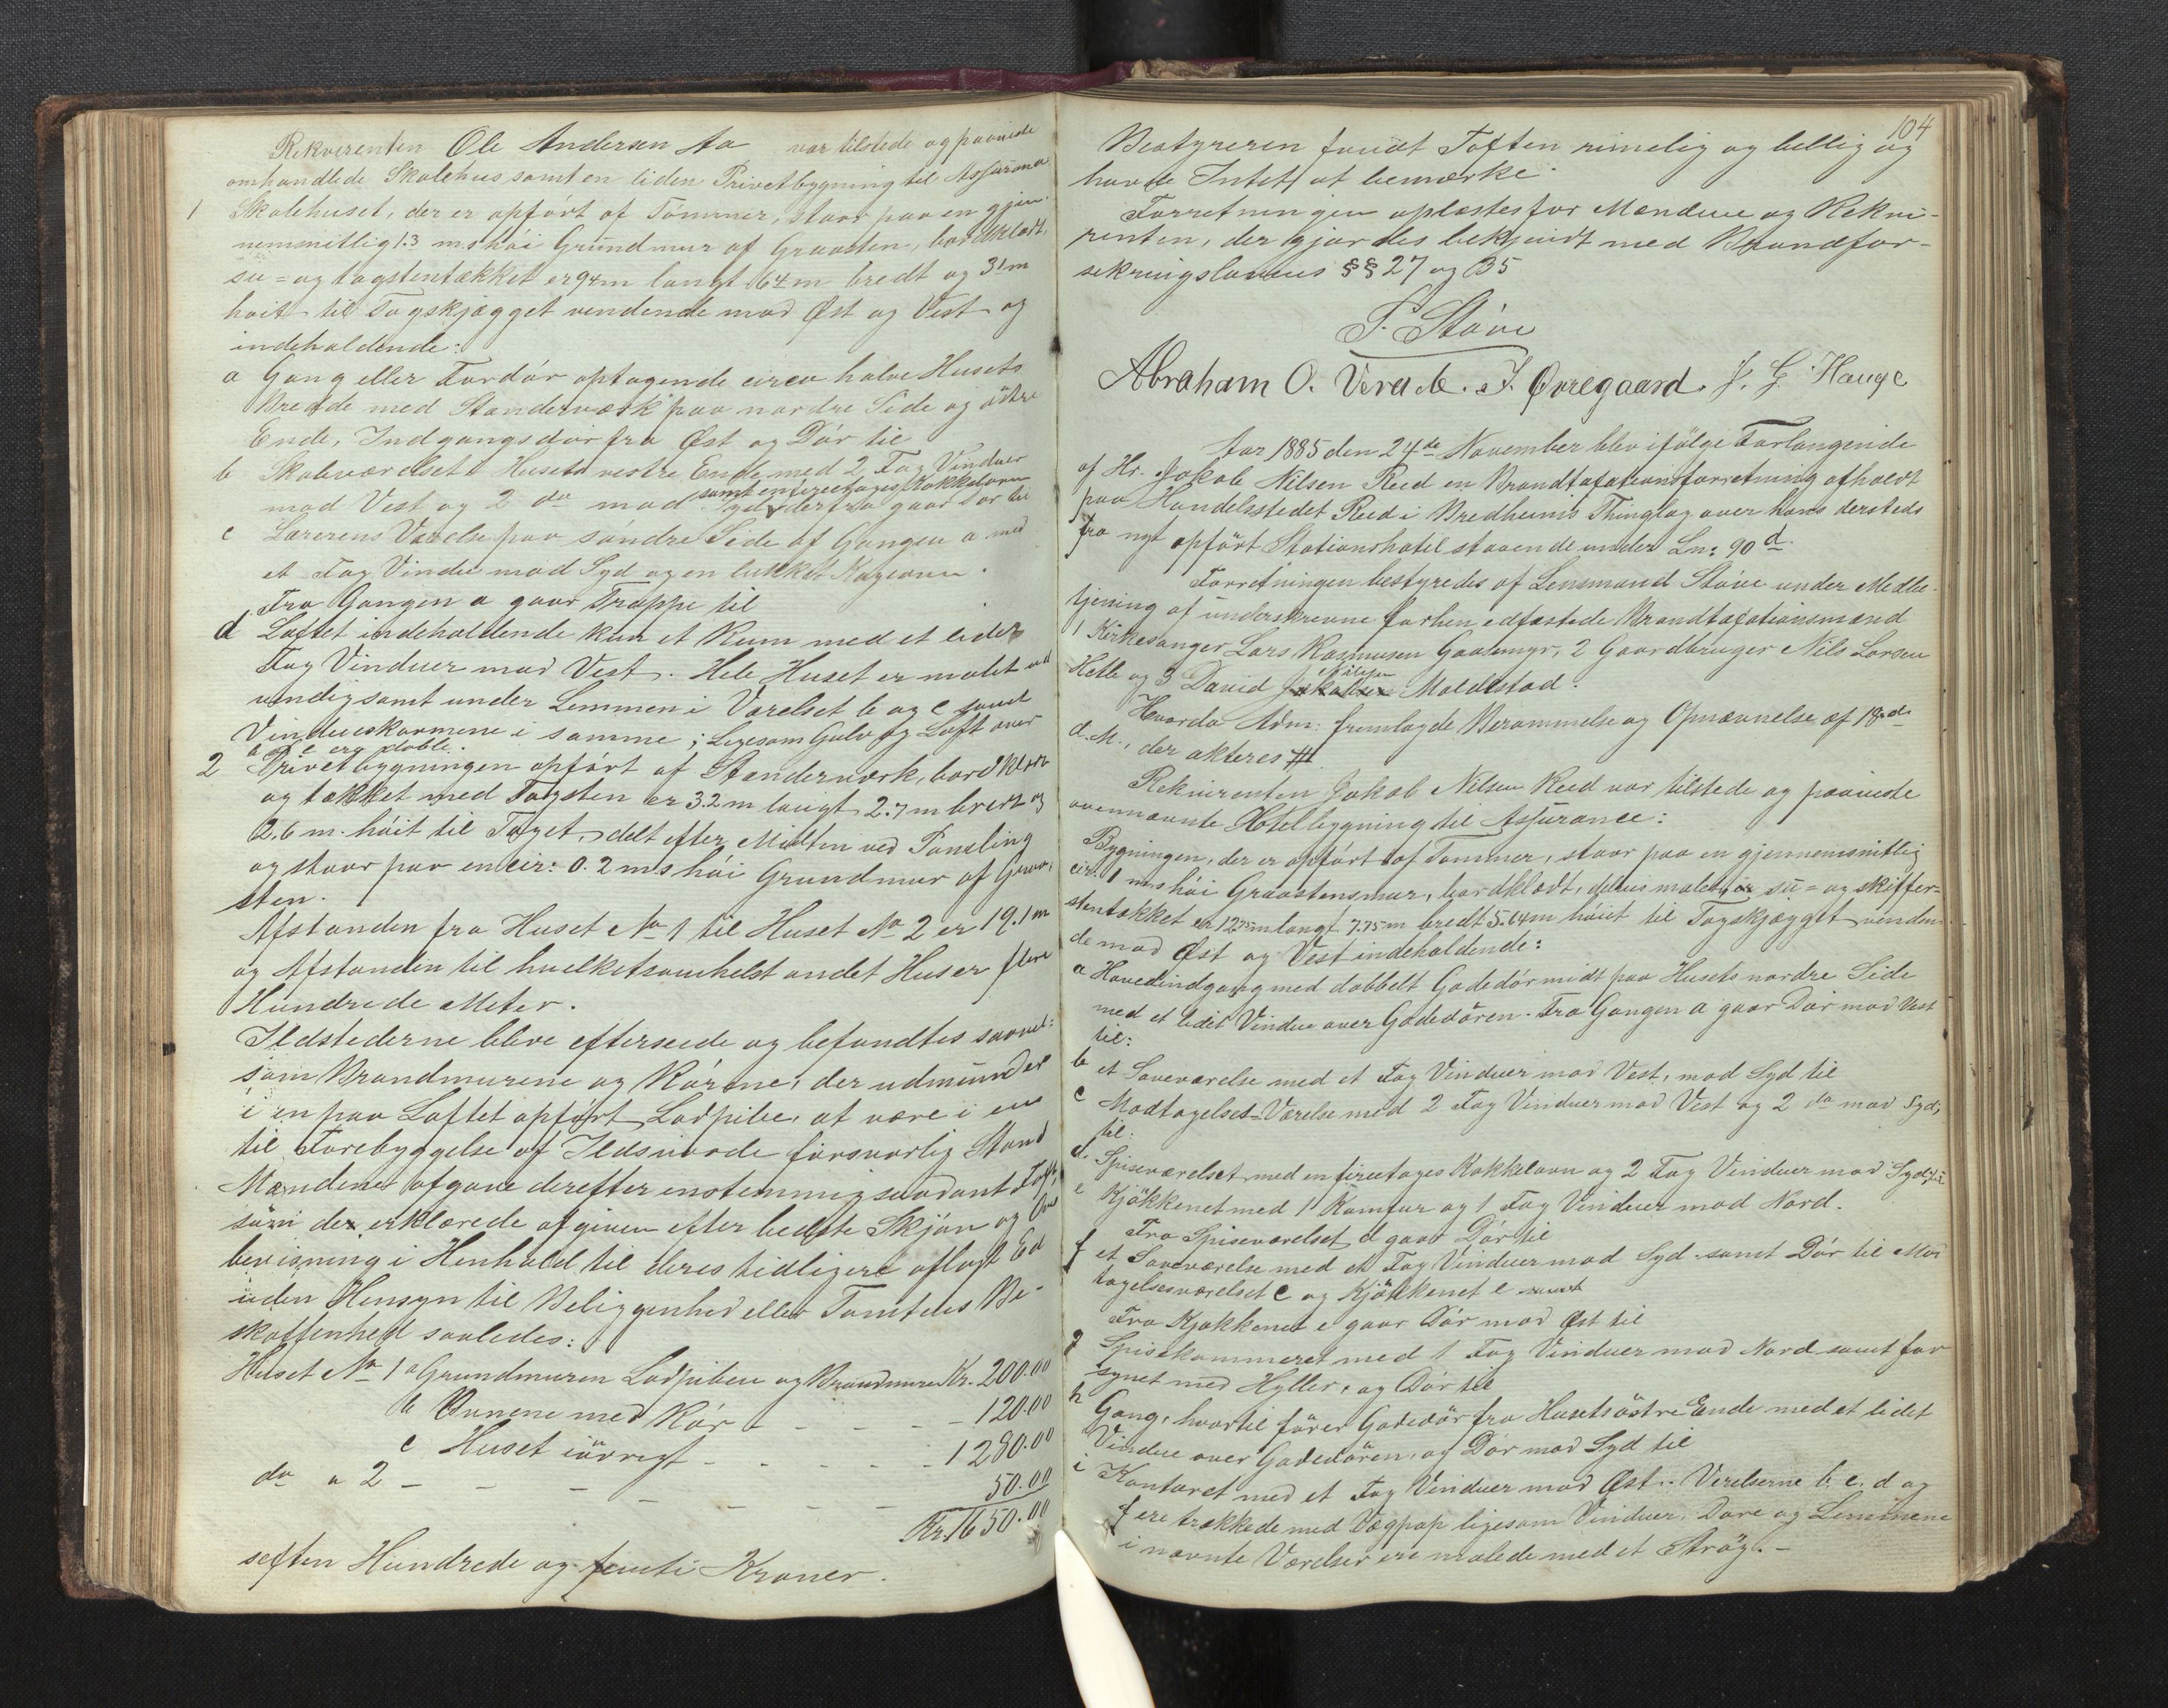 Rekvirenten Ole Andersen Aa var tilstede og paaviste
omhandlede Skolehus samt en liden Privetbygning til Assurance
1 Skolehuset, der er opført af Tømmer, staar paa en gjen-
nemsnitlig 1.3 m.s høi Grundmur af Graasten, bordklædt,
su= og tagstentækket er 9.4m langt 6.4m bredt og 3.1m
høit til Tagskjægget vendende mod Øst og Vest og
indeholdende:
a Gang eller Fordør optagende circa halve Husets
Bredde med Standerværk paa nordre Side og østre
Ende, Indgangsdør fra Øst og Dør til
b Skoleværelset i Husets vestre Ende med 2 Fag Vinduer
samt en fireetages Kakkelovn
mod Vest og 2 do mod Syd derfra gaar Dør til
c Lærerens Værelse paa søndre Side af Gangen a med
et Fag Vindue mod Syd og en lukket Kogeovn.
Fra Gangen a gaar Trappe til
d Loftet indeholdende kun et Rum med et lidet
Fag Vinduer mod Vest. Hele Huset er malet ud
vendig samt under Lemmen i Værelset b og c samt
Vindueskarmene i samme; ligesom Gulv og Loft over
b og c ere doble.
2 Privetbygningen opført af Standerværk, bordklædt
og tækket med Tagsten er 3.2m langt 2.7m bredt og
2.6 m. høit til Taget, delt efter Midten ved Paneling
og staar paa en cir: 0.2 m.s høi Grundmur af Graa-
sten.
Afstanden fra Huset No 1 til Huset No 2 er 19.1m
og Afstanden til hvilketsomhelst andet Hus er flere
Hundrede Meter.
Ildstederne bleve efterseede og befandtes saavel:
som Brandmurene og Rørene, der udmunder
i en paa Loftet opført Lodpibe, at være i en
til Forebyggelse af Ildsvaade forsvarlig Stand
Mændene afgave derefter enstemmig saadant Taxt,
som de erklærede afgiven efter bedste Skjøn og Over
bevisning i Henhold til deres tidligere aflagt Ed
uden Hensyn til Beliggenhed eller Tomtens Be-
skaffenhed saaledes:
Huset No 1 a Grundmuren Lodpiben og Brandmuren Kr. 200.00
b Ovnene med Rør - - - - 120.00
c Huset iøvrigt - - - - - 1280.00
do " 2 - - - - - - - 50.00
Kr. 1650.00
sexten Hundrede og femti Kroner.
104
Bestyreren fandt Taxten rimelig og billig og
havde Intet at bemærke.
Forretningen oplæstes for Mændene og Rekvi-
renten, der gjordes bekjendt med Brandfor-
sikringslovens §§ 27 og 35
S. Støve
Abraham O. Verade. J. Øvregaard. J. G. Hauge
Aar 1885 den 24de November blev ifølge Forlangende
af Hr. Jakob Nilsen Reed en Brandtaxationsforretning afholdt
paa Handelsstedet Reed i Bredheims Thinglag over hans dersteds
fra nyt opført Stationshotel staaende under Ln: 90 d.
Forretningen bestyredes af Lensmand Støve under Medbe-
tjening af underskrevne forhen edfæstede Brandtaxationsmænd
1 Kirkesanger Lars Rasmusen Gaasemyr, 2 Gaardbruger Nils Larsen
Nilsen
Hetle og 3 David Jakobsen Moldestad.
Hvorda Adm: fremlagde Berammelse og Opnævnelse af 18de
d. M., der akteres #
Rekvirenten Jakob Nilsen Reed var tilstede og paaviste
ovennævnte Hotelbygning til Assurance:
Bygningen, der er opført af Tømmer, staar paa en gjennemsnitlig
cir: 1 m.s høi Graastensmur, bordklædt, delvis malet, er su= og skiffer-
stentækket er 12.75m langt 7.75m bredt 5.64m høiet til Tagskjægget venden-
de mod Øst og Vest indeholdende:
a Hovedindgang med dobbelt Gadedør midt paa Husets nordre Side
med et lidet Vindue over Gadedøren. Fra Gangen a gaar Dør mod Vest
til:
b et Soveværelse med et Fag Vinduer mod Vest, mod Syd til
c Modtagelses-Værelse med 2 Fag Vinduer mod Vest og 2 do mod Syd,
til:
d. Spiseværelset med en fireetages Kakkelovn og 2 Fag Vinduer mod Syd, til
e Kjøkkenet med 1 Komfur og 1 Fag Vinduer mod Nord.
Fra Spiseværelset d gaar Dør til
f et Soveværelse med et Fag Vinduer mod Syd samt Dør til Mod
tagelsesværelset c og Kjøkkenet e samt
Fra Kjøkkenet e gaar Dør mod Øst til
g Spisekammeret med 1 Fag Vinduer mod Nord samt for
synet med Hyller, og Dør til
h Gang, hvortil fører Gadedør fra Husets østre Ende med et lidet
Vindue over Gadedøren, og Dør mod Syd til
i Kontoret med et Fag Vinduer mod Øst. Værelserne b, c, d og
f ere trækkede med Vægpap ligesom Vinduer, Døre og Lemmene
i nævnte Værelser ere malede med et Strøg. -